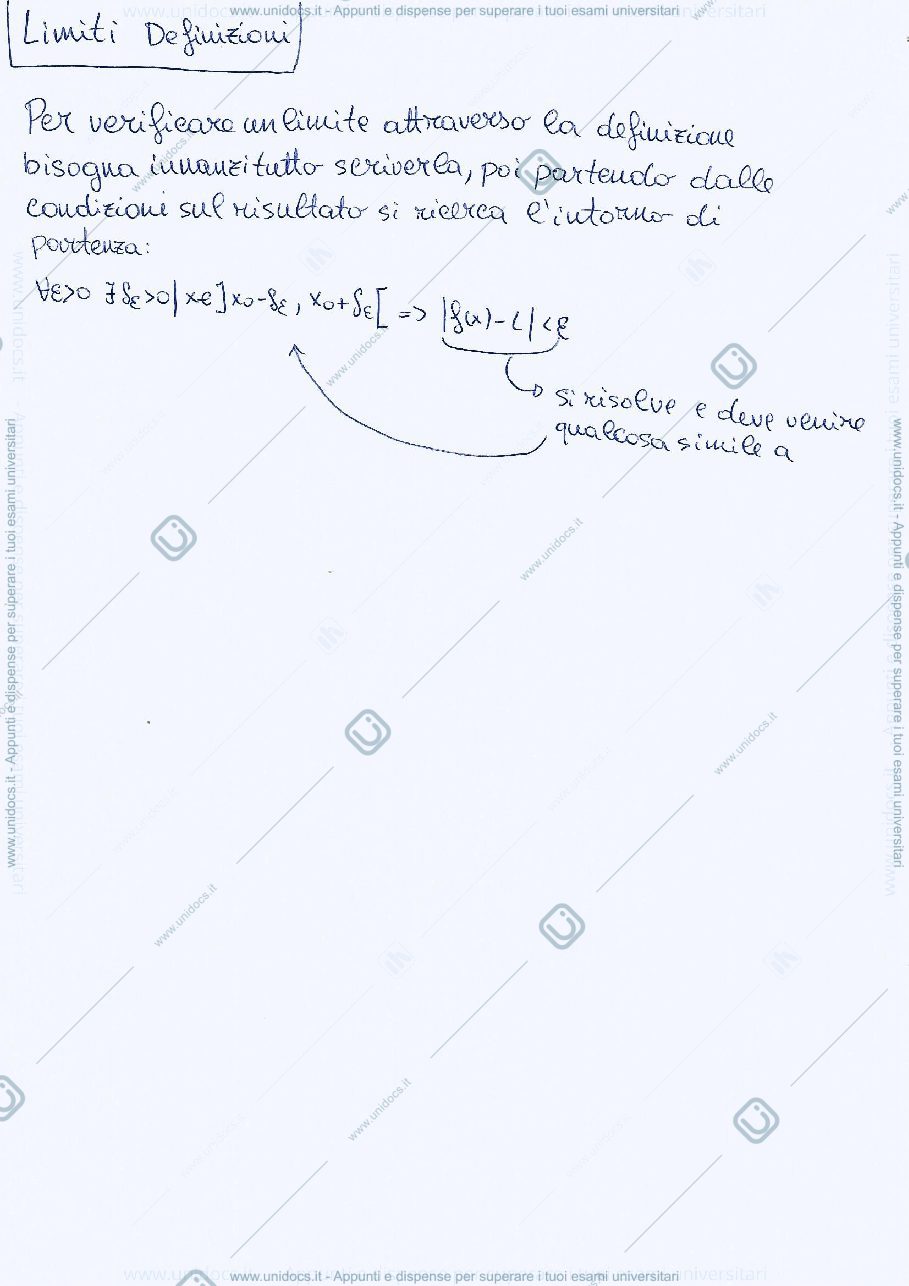 www.unidocs.it - Appunti e dispense per superare i tuoi esami universitari
Limiti Definizioni
Per verificare un limite attraverso la definizione
bisogna innanzitutto scriverla, poi partendo dalle
condizioni sul risultato si ricerca l'intorno di
partenza:
∀ε>0 ∃ δε>0 | x∈]x0-δε, x0+δε[ => |f(x)-L|<ε
si risolve e deve venire
qualcosa simile a
www.unidocs.it - Appunti e dispense per superare i tuoi esami universitari
www.unidocs.it - Appunti e dispense per superare i tuoi esami universitari
www.unidocs.it
www.unidocs.it
www.unidocs.it
www.unidocs.it
www.unidocs.it
www.unidocs.it
www.unidocs.it - Appunti e dispense per superare i tuoi esami universitari